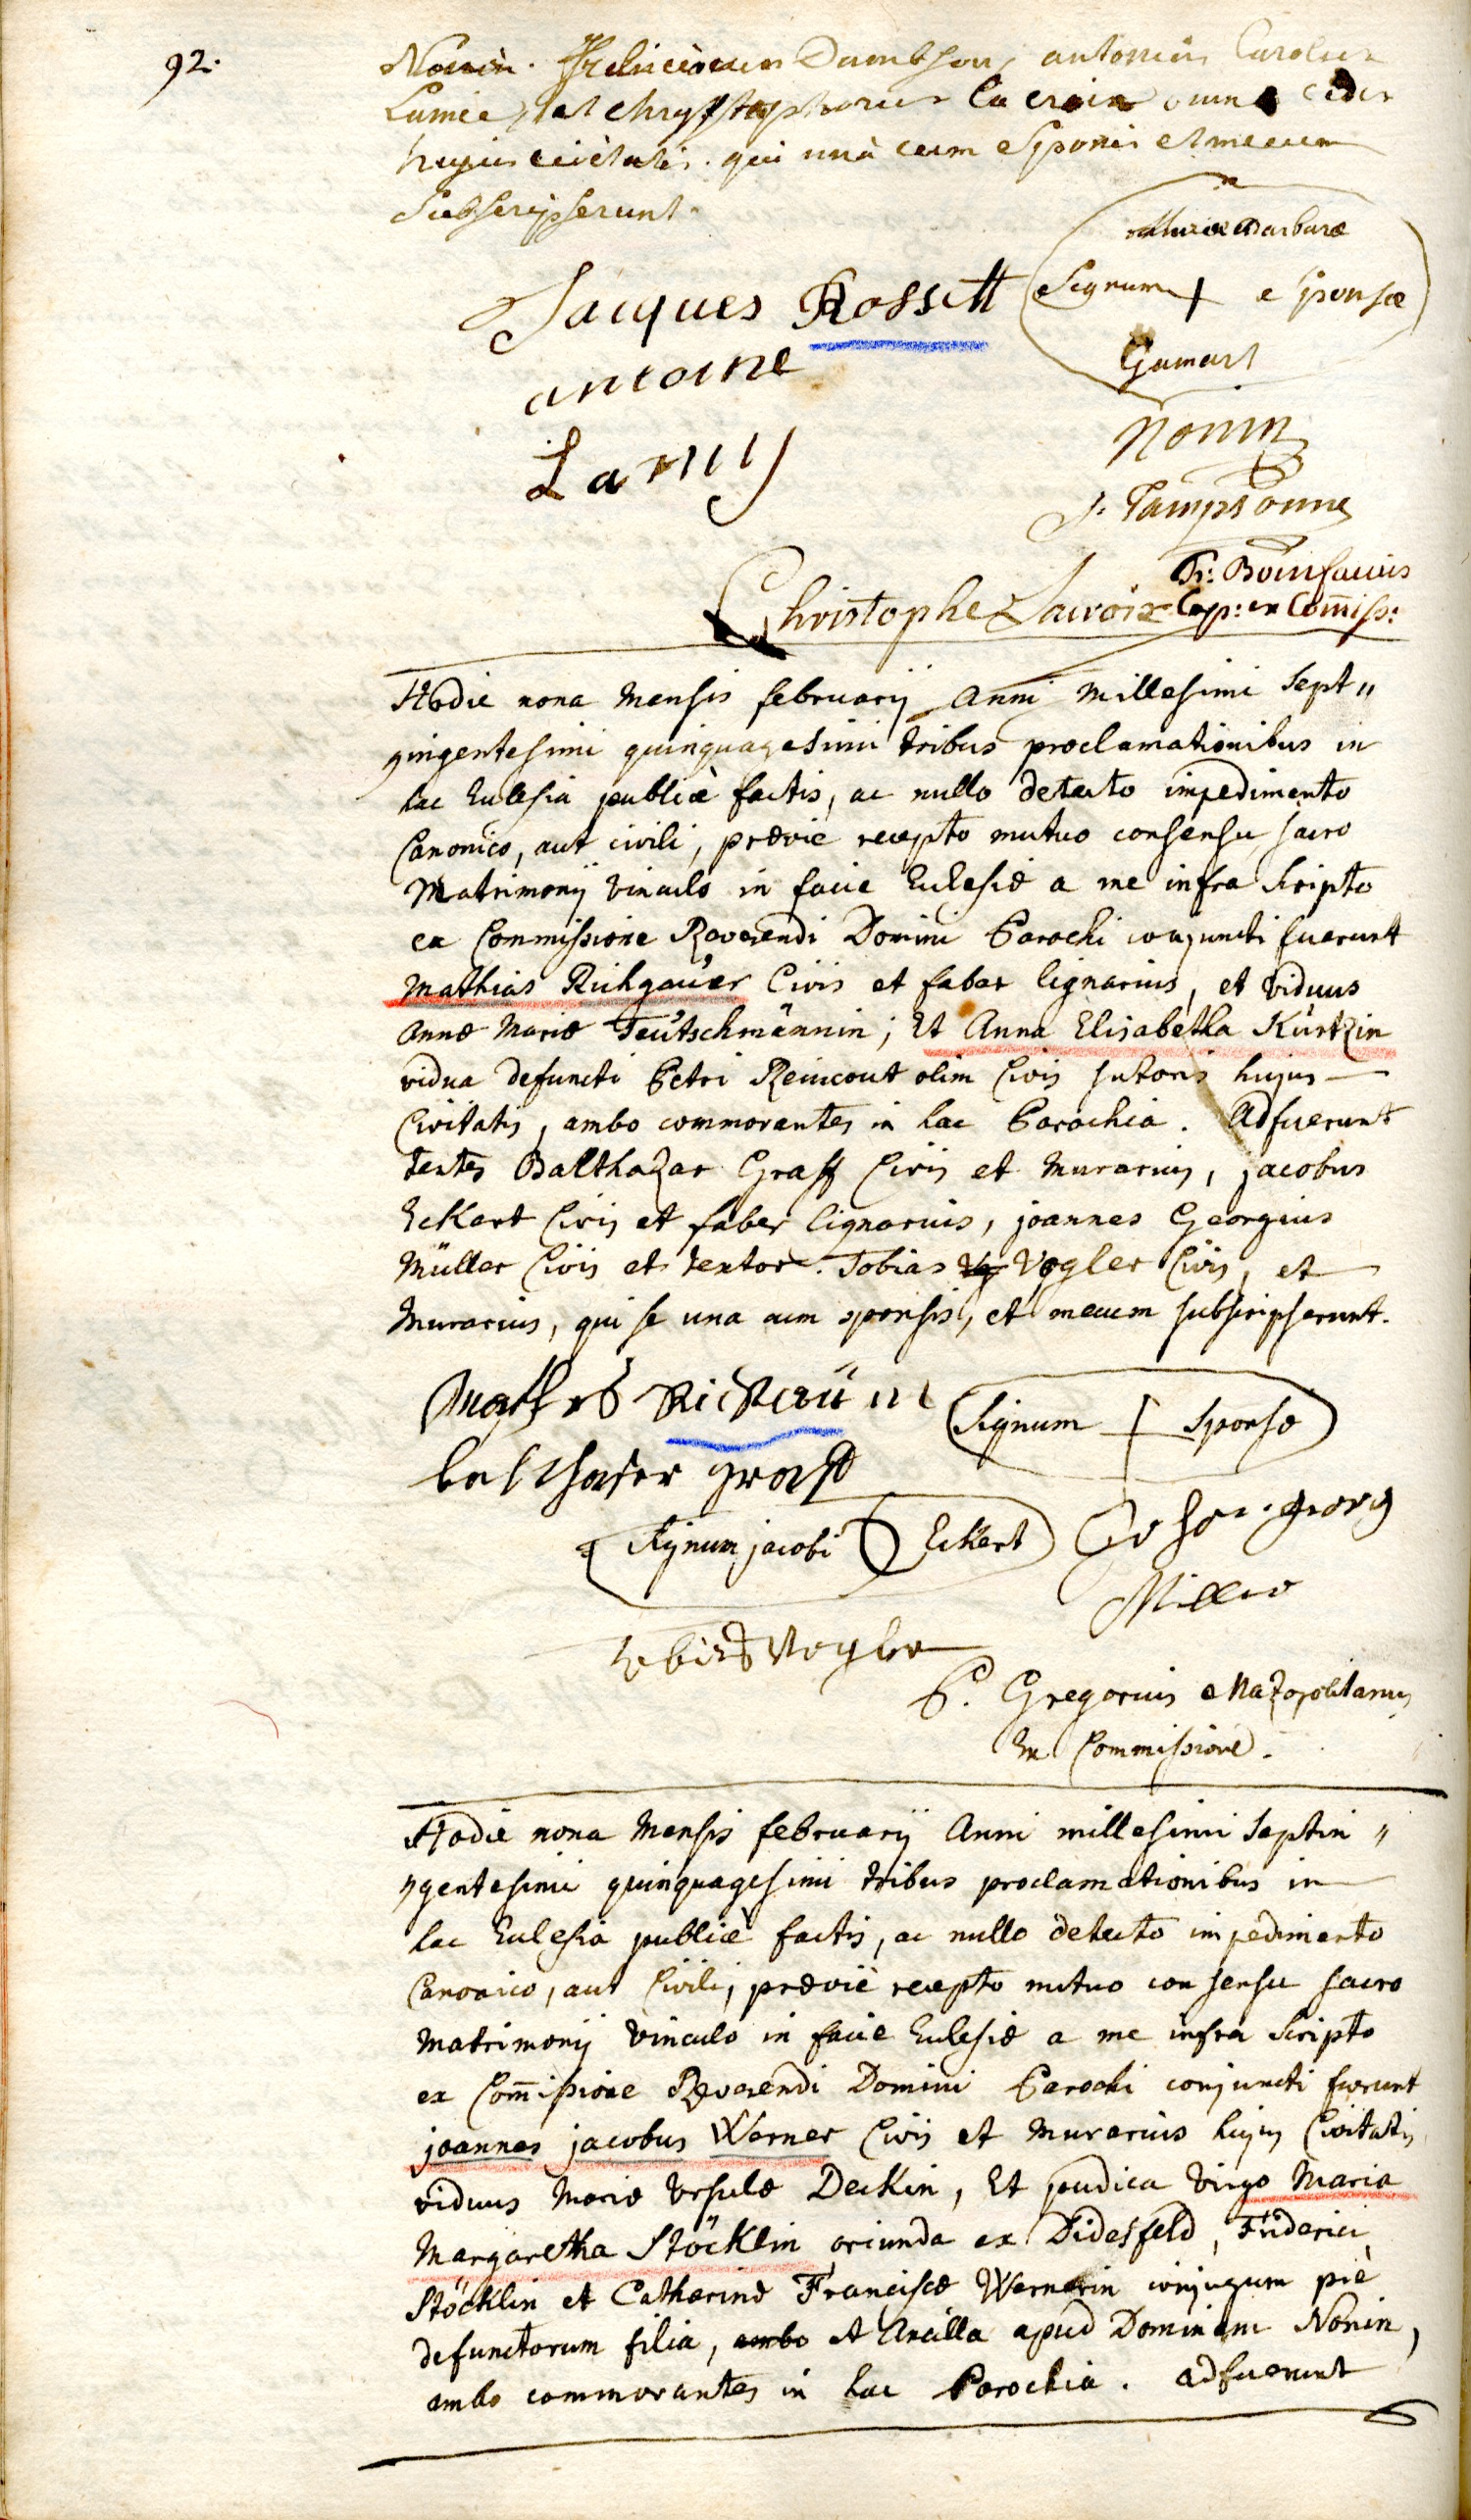 92.
Nonin. Dambson, antonius Carolus
Lamie, et Chrystophorus la croix omnes cives
hujus civitatis. qui unà cum Sponsis et mecum
Subscripserunt.
Mariæ Barbaræ
Jacques Rossitt Signum + Sponsæ
antoine Gamart
Lamy Nonin
J. Tampsonne
Fr: Bonifacius
Christophe Lacroix Cap: ex Com̄iss:
Hodie nona Mensis februarij Anni Millesimi Sept„
gingentesimi quinquagesimi tribus proclamationibus in
hac Eclesia publicè factis, ac nullo detecto impedimento
Canonico, aut civili, prævie recepto mutuo consensu sacro
Matrimonij vinculo in facie Eclesiæ a me infra scripto
ex Commissione Reverendi Domini Parochi conjuncti fuerunt
Mathias Richgauer Civis et faber lignarius, et viduus
Annæ Mariæ Teutschmännin; Et Anna Elisabetha Kürtzin
vidua defuncti Petri Reincout olim Civis sutoris hujus
Civitatis, ambo commorantes in hac Parochia. Adfuerunt
testes Balthazar Graff Civis et Murarius, jacobus
Eckart Civis et faber lignarius, joannes Georgius
Müller Civis et textor. Tobias Vogler Civis, et
Murarius, qui se una cum sponsis, et mecum subscripserunt.
Signum + Sponsæ
balthaser graff
Signum jacobi Eckert georg
Miller
Vogler
P. Gregorius
Ex Commissione.
Hodie nona Mensis februarij Anni millesimi Septin„
gentesimi quinquagesimi tribus proclamationibus in
hac Eclesia publicè factis, ac nullo detecto impedimento
Canonico, aut Civili, præviè recepto mutuo consensu sacro
Matrimonij vinculo in facie Eclesiæ a me infra scripto
ex Com̄issione Reverendi Domini Parochi conjuncti fuerunt
joannes jacobus Werner Civis et Murarius hujus Civitatis
viduus Mariæ Ursulæ Deckin, Et pudica Virgo Maria
Margaretha Stöcklin oriunda ex Didesfeld, Friderici
Stöcklin et Catharinæ Franciscæ Wernerin conjugum piè
defunctorum filia, ambo et Ancilla apud Dominum Nonin,
ambo commorantes in hac Parochia. adfuerunt